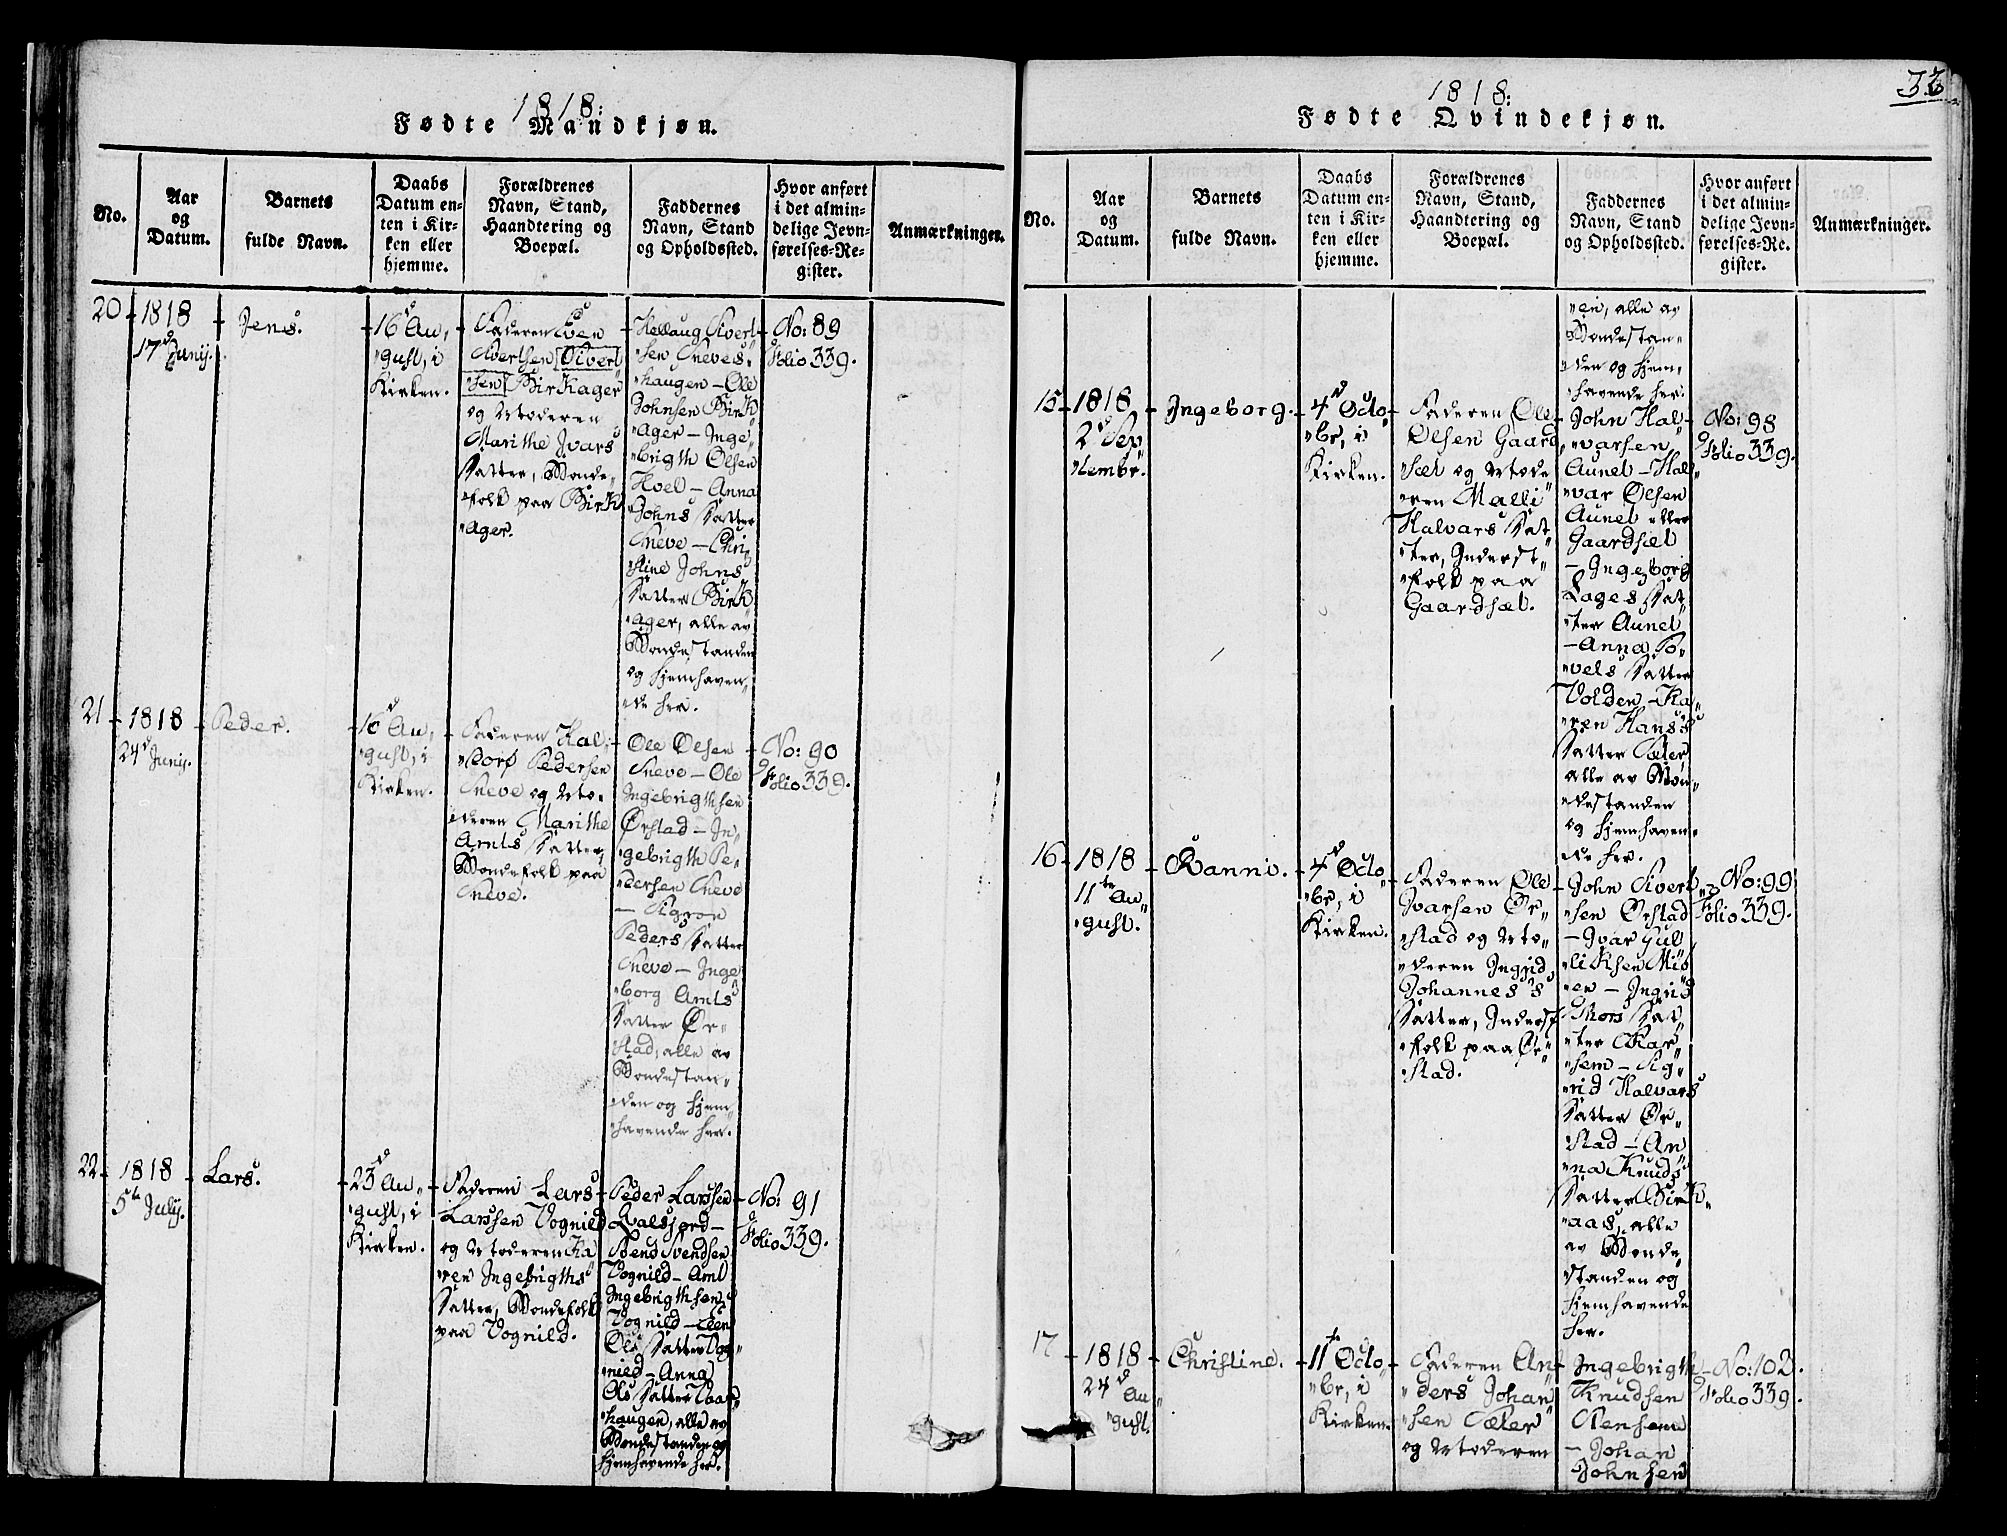 1818:
Fødte Mandkjøn.
No.
Aar
og
Datum.
Barnets
fulde Navn.
Daabs
Datum en-
ten i Kir-
ken eller
hjemme.
Forældrenes
Navn, Stand,
Haandtering og
Boepæl.
Faddernes
Navn, Stand
og Opholdssted.
Hvor anført
i det almin-
delige Jevn-
førelses-Re-
gister.
Anmærkninger.
20
1818
17d Junij.
Jens.
16d Au„
„gust, i
Kirken.
Faderen Sven
Sivertsen Sivert„
„sen Birkager
og Moderen
Marithe Ivars
Datter, Bonde„
„folk paa Birk„
„ager.
Sivert„
„sen Sneves„
„haugen – Ole
Johnsen Birk„
„ager – Inge„
„brigth Olsen
Hoel – Anna
Johns Datter
Sneve – Chri„
„stine Johns
Datter Birk„
„ager, alle av
Bondestanden
og hjemhaven„
„de her.
No: 89
Folio 339.
21
1818
24d Junij.
Peder.
16d Au„
„gust, i
Kirken.
Faderen Hal„
„dorø Pedersen
Sneve og Mo„
„deren Marithe
Arnts Datter,
Bondefolk paa
Sneve.
Ole Olsen
Sneve – Ole
Ingebrigthsen
Ørstad – In„
„gebrigth Pe„
„dersen Sneve
– Sigron
Peders Datter
Sneve – Inge„
„borg Arnts
Datter Ør„
„stad, alle av
Bondestan„
„den og hjem„
„havende her.
No: 90
Folio 339.
22
1818
5te Julij.
Lars.
23d Au„
„gust, i
Kirken.
Faderen Lars
Larssen Vognild
og Moderen Ka„
„ren Ingebrigths
Datter, Bondefolk
paa Vognild.
Peder Larssen
–
Svend Svendsen
Vognild – Arnt
Ingebrigthsen
Vognild –
Ols Datter Vog„
„nild – Anna
Ols Datter
„haugen, alle av
Bondestanden og
hjemhavende her.
No: 91
Folio 339.
33
1818:
Fødte Qvindekjøn.
No.
Aar
og
Datum.
Barnets
fulde Navn.
Daabs
Datum en-
ten i Kir-
ken eller
hjemme.
Forældrenes
Navn, Stand,
Haandtering og
Boepæl.
Faddernes
Navn, Stand
og Opholdssted.
Hvor anført
i det almin-
delige Jevn-
førelses-Re-
gister.
Anmærkninger.
alle av
Bondestan„
„den og hjem„
„havende her.
15
1818
2d Sep„
„tembr.
Ingeborg.
4d Octo„
„br, i
Kirken.
Faderen Ole
Olsen Gaard„
„sæt og Mode„
„ren Malli
Halvars Dat„
„ter, Inderst„
„folk paa
Gaardsæt.
John Hal„
„varsen
Aunet – Hal„
„var Olsen
Aunet eller
Gaardsæt
– Ingeborg
Lages Dat„
„ter Aunet
– Anna Po„
„vels Datter
Volden – Ka„
„ren Hans's
Datter Sæter
alle av Bon„
„destanden
og hjemhaven„
„de her.
No: 98
Folio 339.
16
1818
11te Au„
„gust.
Ranni.
4d Octo„
„br, i
Kirken.
Faderen Ole
Ivarsen Ør„
„stad og Mo„
„deren Ingrid
Johannes's
Datter, Inderst„
„folk paa Ør„
„stad.
John Sivert„
„sen Ørstad
– Ivar Gul„
„liksen Mio„
„en – Ingrid
Thors Dat„
„ter
„sem – Sig„
„rid Halvars
Datter Ør„
„stad – An„
„na Knuds
Datter Birk„
„aas, alle
av Bonde„
„standen og
hjemhavende
her.
No: 99
Folio 339.
17
1818
24d Au„
„gust.
Christine.
11te Octo„
„br, i
Kirken.
Faderen An„
„ders Johan„
„sen Sæter
og Moderen
Ingebrigth
Knudsen
– Johan
Johnsen
No: 102.
Folio 339.